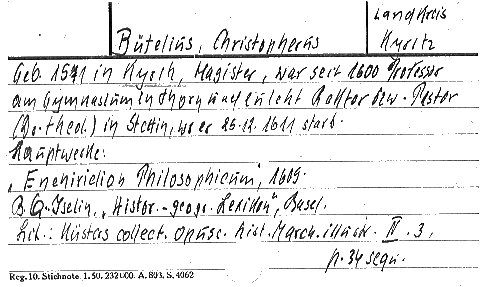 Bütelius, Christophorus
Landkreis
Kyritz
Geb. 1571 in Kyritz, Magister, war seit 1600 Professor
am Gymnasium in Thorn und zuletzt Rektor bzw. Pastor
(Dr. theol.) in Stettin, wo er 25.12.1611 starb.
Hauptwerke:
"Enchiridion Philosophicum", 1609.
B. G. Iselin, "Histor.-geogr. Lexikon", Basel.
Lit.: Küsters collect. opusc. hist. March. illustr. II. 3,
p. 34 sequ.
Reg. 10. Stichnote. 1. 50. 232000. A. 803. S. 4062